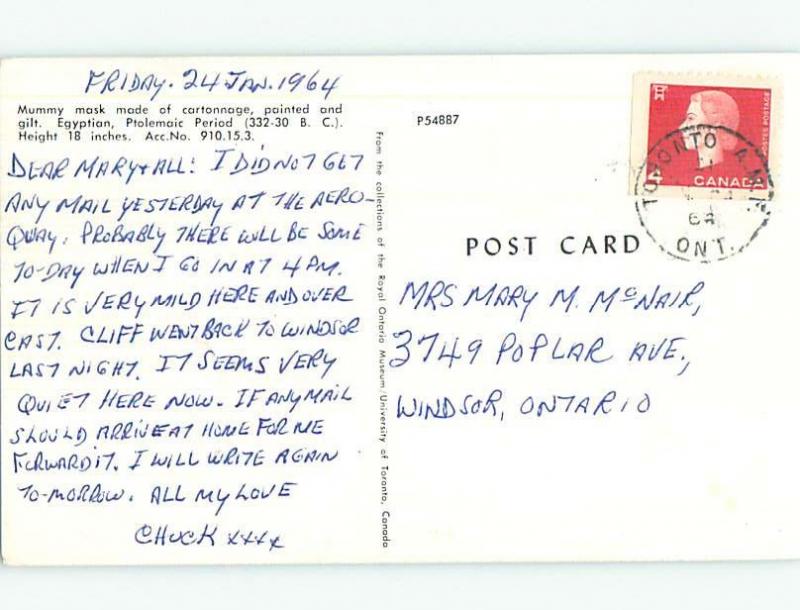 FRIDAY. 24 JAN. 1964
Mummy mask made of cartonnage, painted and
gilt. Egyptian, Ptolemaic Period (332-30 B. C.).
Height 18 inches. Acc.No. 910.15.3.
DEAR MARY + ALL: I DID NOT GET
ANY MAIL YESTERDAY AT THE AERO-
QUAY. PROBABLY THERE WILL BE SOME
TO-DAY WHEN I GO IN AT 4 PM.
IT IS VERY MILD HERE AND OVER
CAST. CLIFF WENT BACK TO WINDSOR
LAST NIGHT. IT SEEMS VERY
QUIET HERE NOW. IF ANY MAIL
SHOULD ARRIVE AT HOME FOR ME
FORWARD IT. I WILL WRITE AGAIN
TO-MORROW. ALL MY LOVE
CHUCK xxxx
From the collections of the Royal Ontario Museum/University of Toronto, Canada
P54887
POST CARD
4
CANADA
POSTES POSTAGE
TORONTO A.M.F.
64
ONT.
MRS MARY M. McNAIR,
3749 POPLAR AVE.,
WINDSOR, ONTARIO